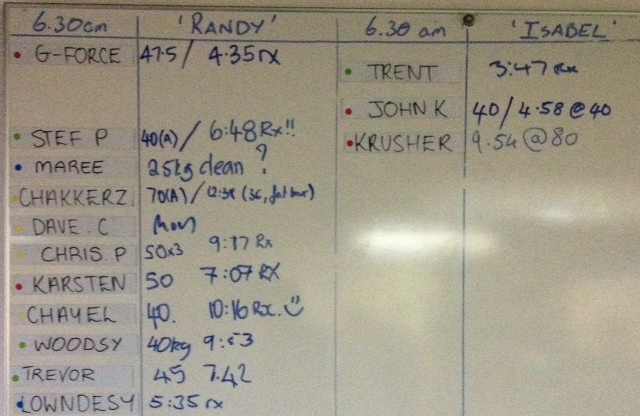 6.30am 'RANDY'
G-FORCE 47.5/ 4.35rx
STEF P 40(A)/ 6:48Rx!!
MAREE 25kg clean ?
CHAKKERZ 70(A)/
DAVE.C
CHRIS.P 50x3 9:17 Rx
KARSTEN 50 7:07 RX
CHAYEL 40. 10:16 Rx.
WOODSY 40kg
TREVOR 45 7.42
LOWNDESY 5:35 rx
6.30 am 'ISABEL'
TRENT 3:47 Rx
JOHN K 40/4.58@40
KRUSHER 9.54@80